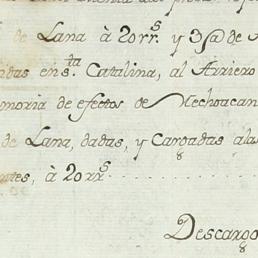 de Lana à 20rr.s y 3@ de
en s.ta Catalina, al Arriero
moria de efectos de Mechoacan
de Lana, dadas, y Cargadas alas
tes, à 20rr.s
Descargo